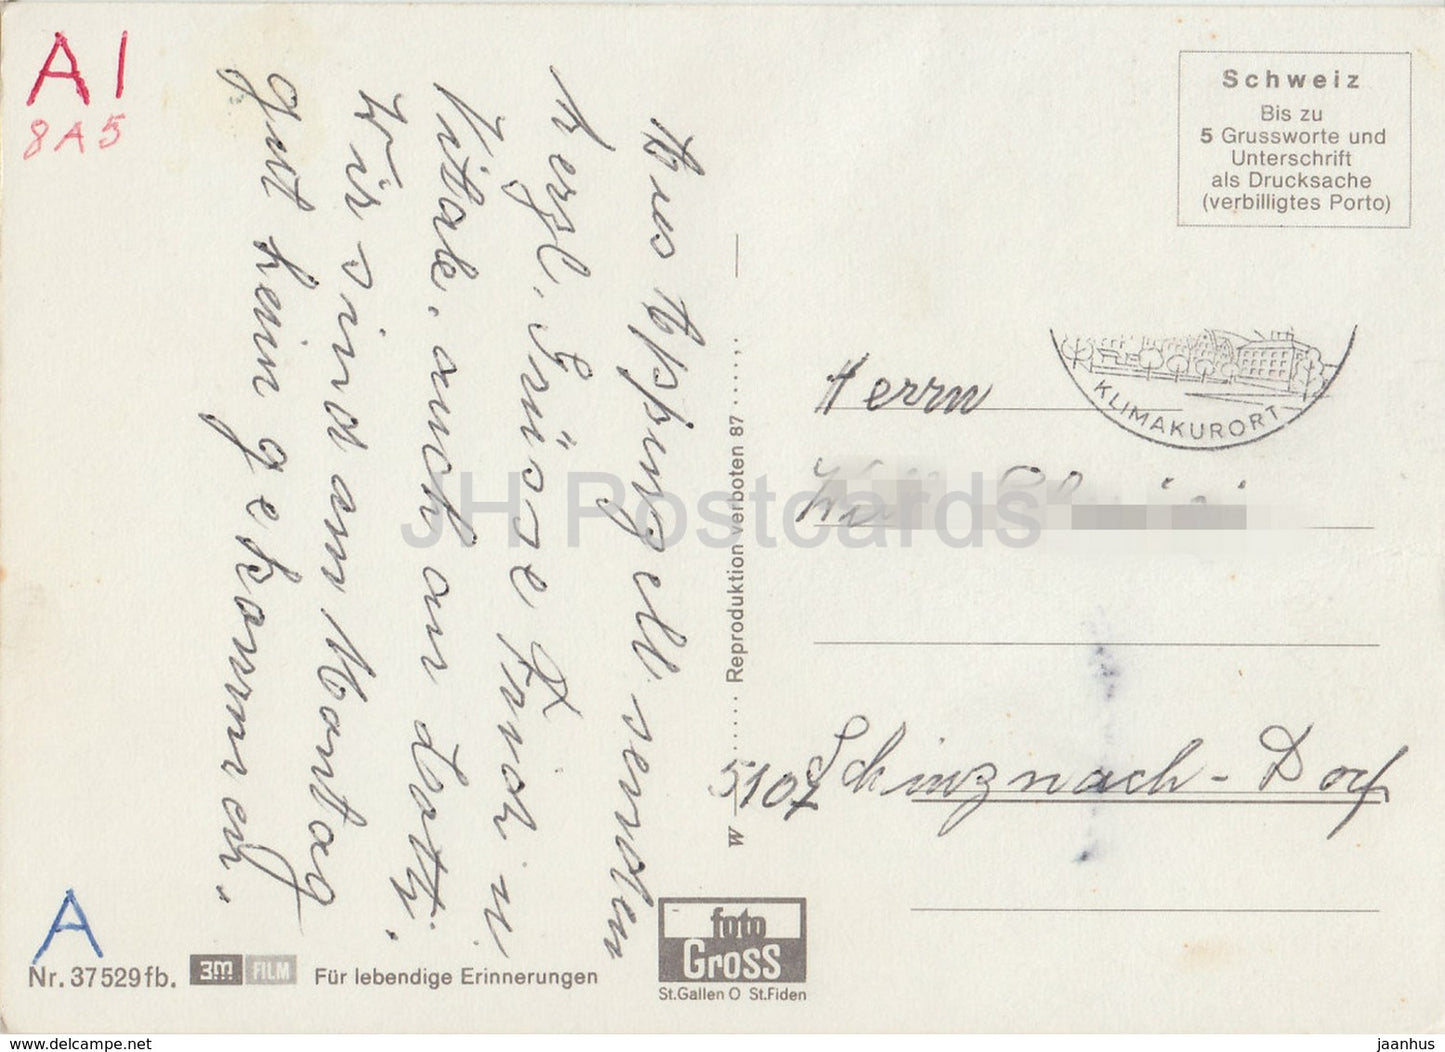 A I
8A5
Aus Appenzell senden
herzl. Grüsse Fridi u.
Vitale. auch an Dotti.
Wir sind am Montag
gut heim gekommen.
Schweiz
Bis zu
5 Grussworte und
Unterschrift
als Drucksache
(verbilligtes Porto)
KLIMAKURORT
Herrn
5107 Schinznach-Dorf
w ....... Reproduktion verboten 87 .......
A
Nr. 37529fb. 3M FILM Für lebendige Erinnerungen
foto
Gross
St.Gallen O St.Fiden
JH Postcards
www.delcampe.net
jaanhus